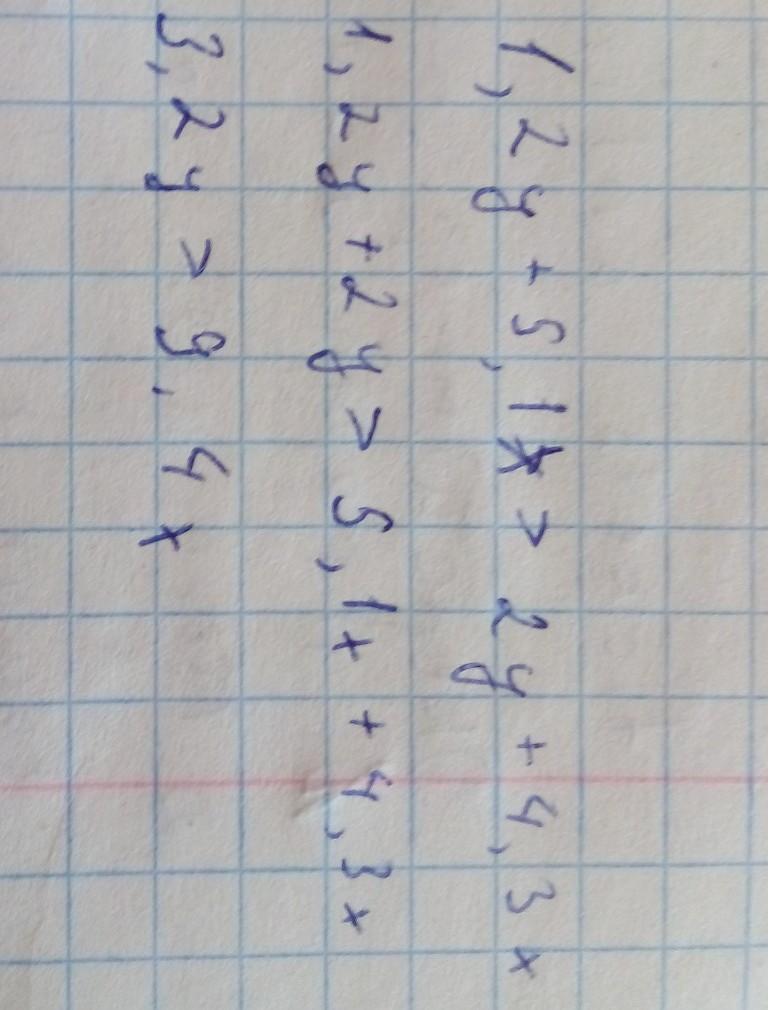 1,2y + 5,1x > 2y + 4,3x
1,2y + 2y > 5,1x + 4,3x
3,2y > 9,4x